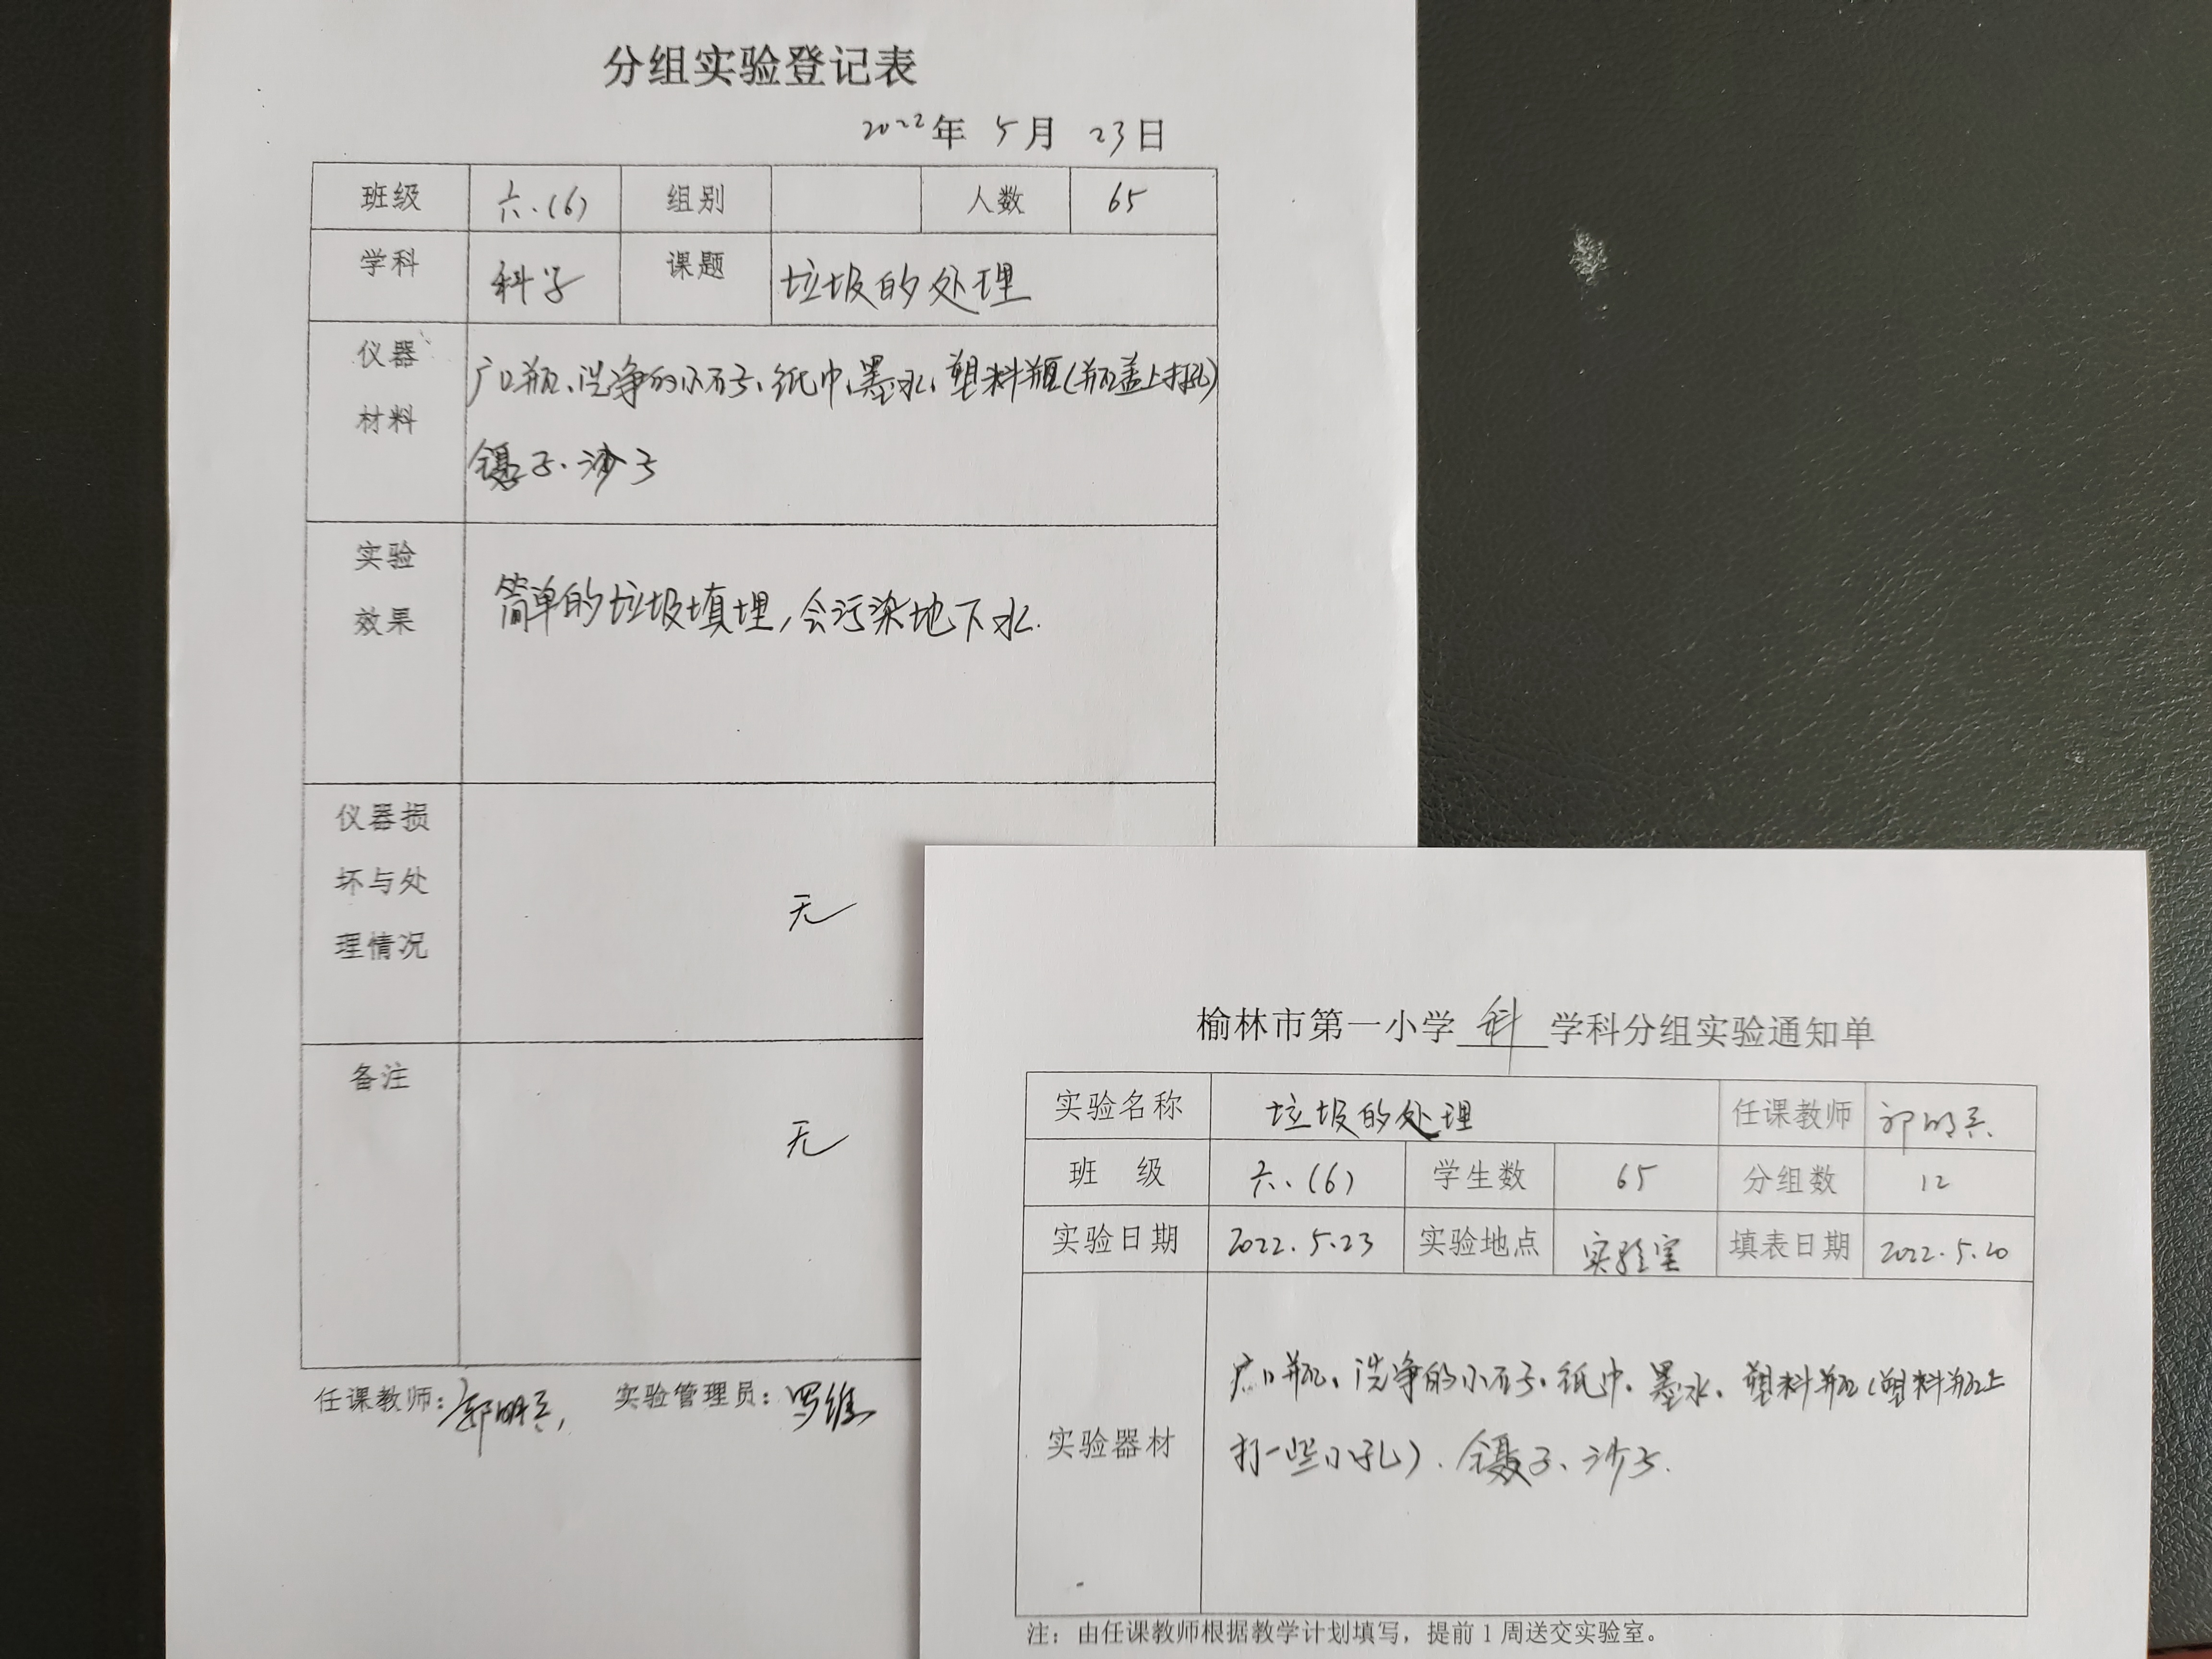 分组实验登记表
2022年 5月 23日
班级 六、(6) 组别 人数 65
学科 科学 课题 垃圾的处理
仪器
材料
广口瓶、洗净的小石子、纸巾、墨水、塑料瓶(瓶盖上打孔)
镊子、沙子
实验
效果
简单的垃圾填埋,会污染地下水.
仪器损
坏与处
理情况
无
备注
无
任课教师: 郭明 实验管理员: 罗维
榆林市第一小学 科 学科分组实验通知单
实验名称 垃圾的处理 任课教师 郭明
班 级 六、(6) 学生数 65 分组数 12
实验日期 2022.5.23 实验地点 实验室 填表日期 2022.5.20
实验器材
广口瓶、洗净的小石子、纸巾、墨水、塑料瓶(塑料瓶上
打一些小孔)、镊子、沙子.
注:由任课教师根据教学计划填写,提前1周送交实验室。